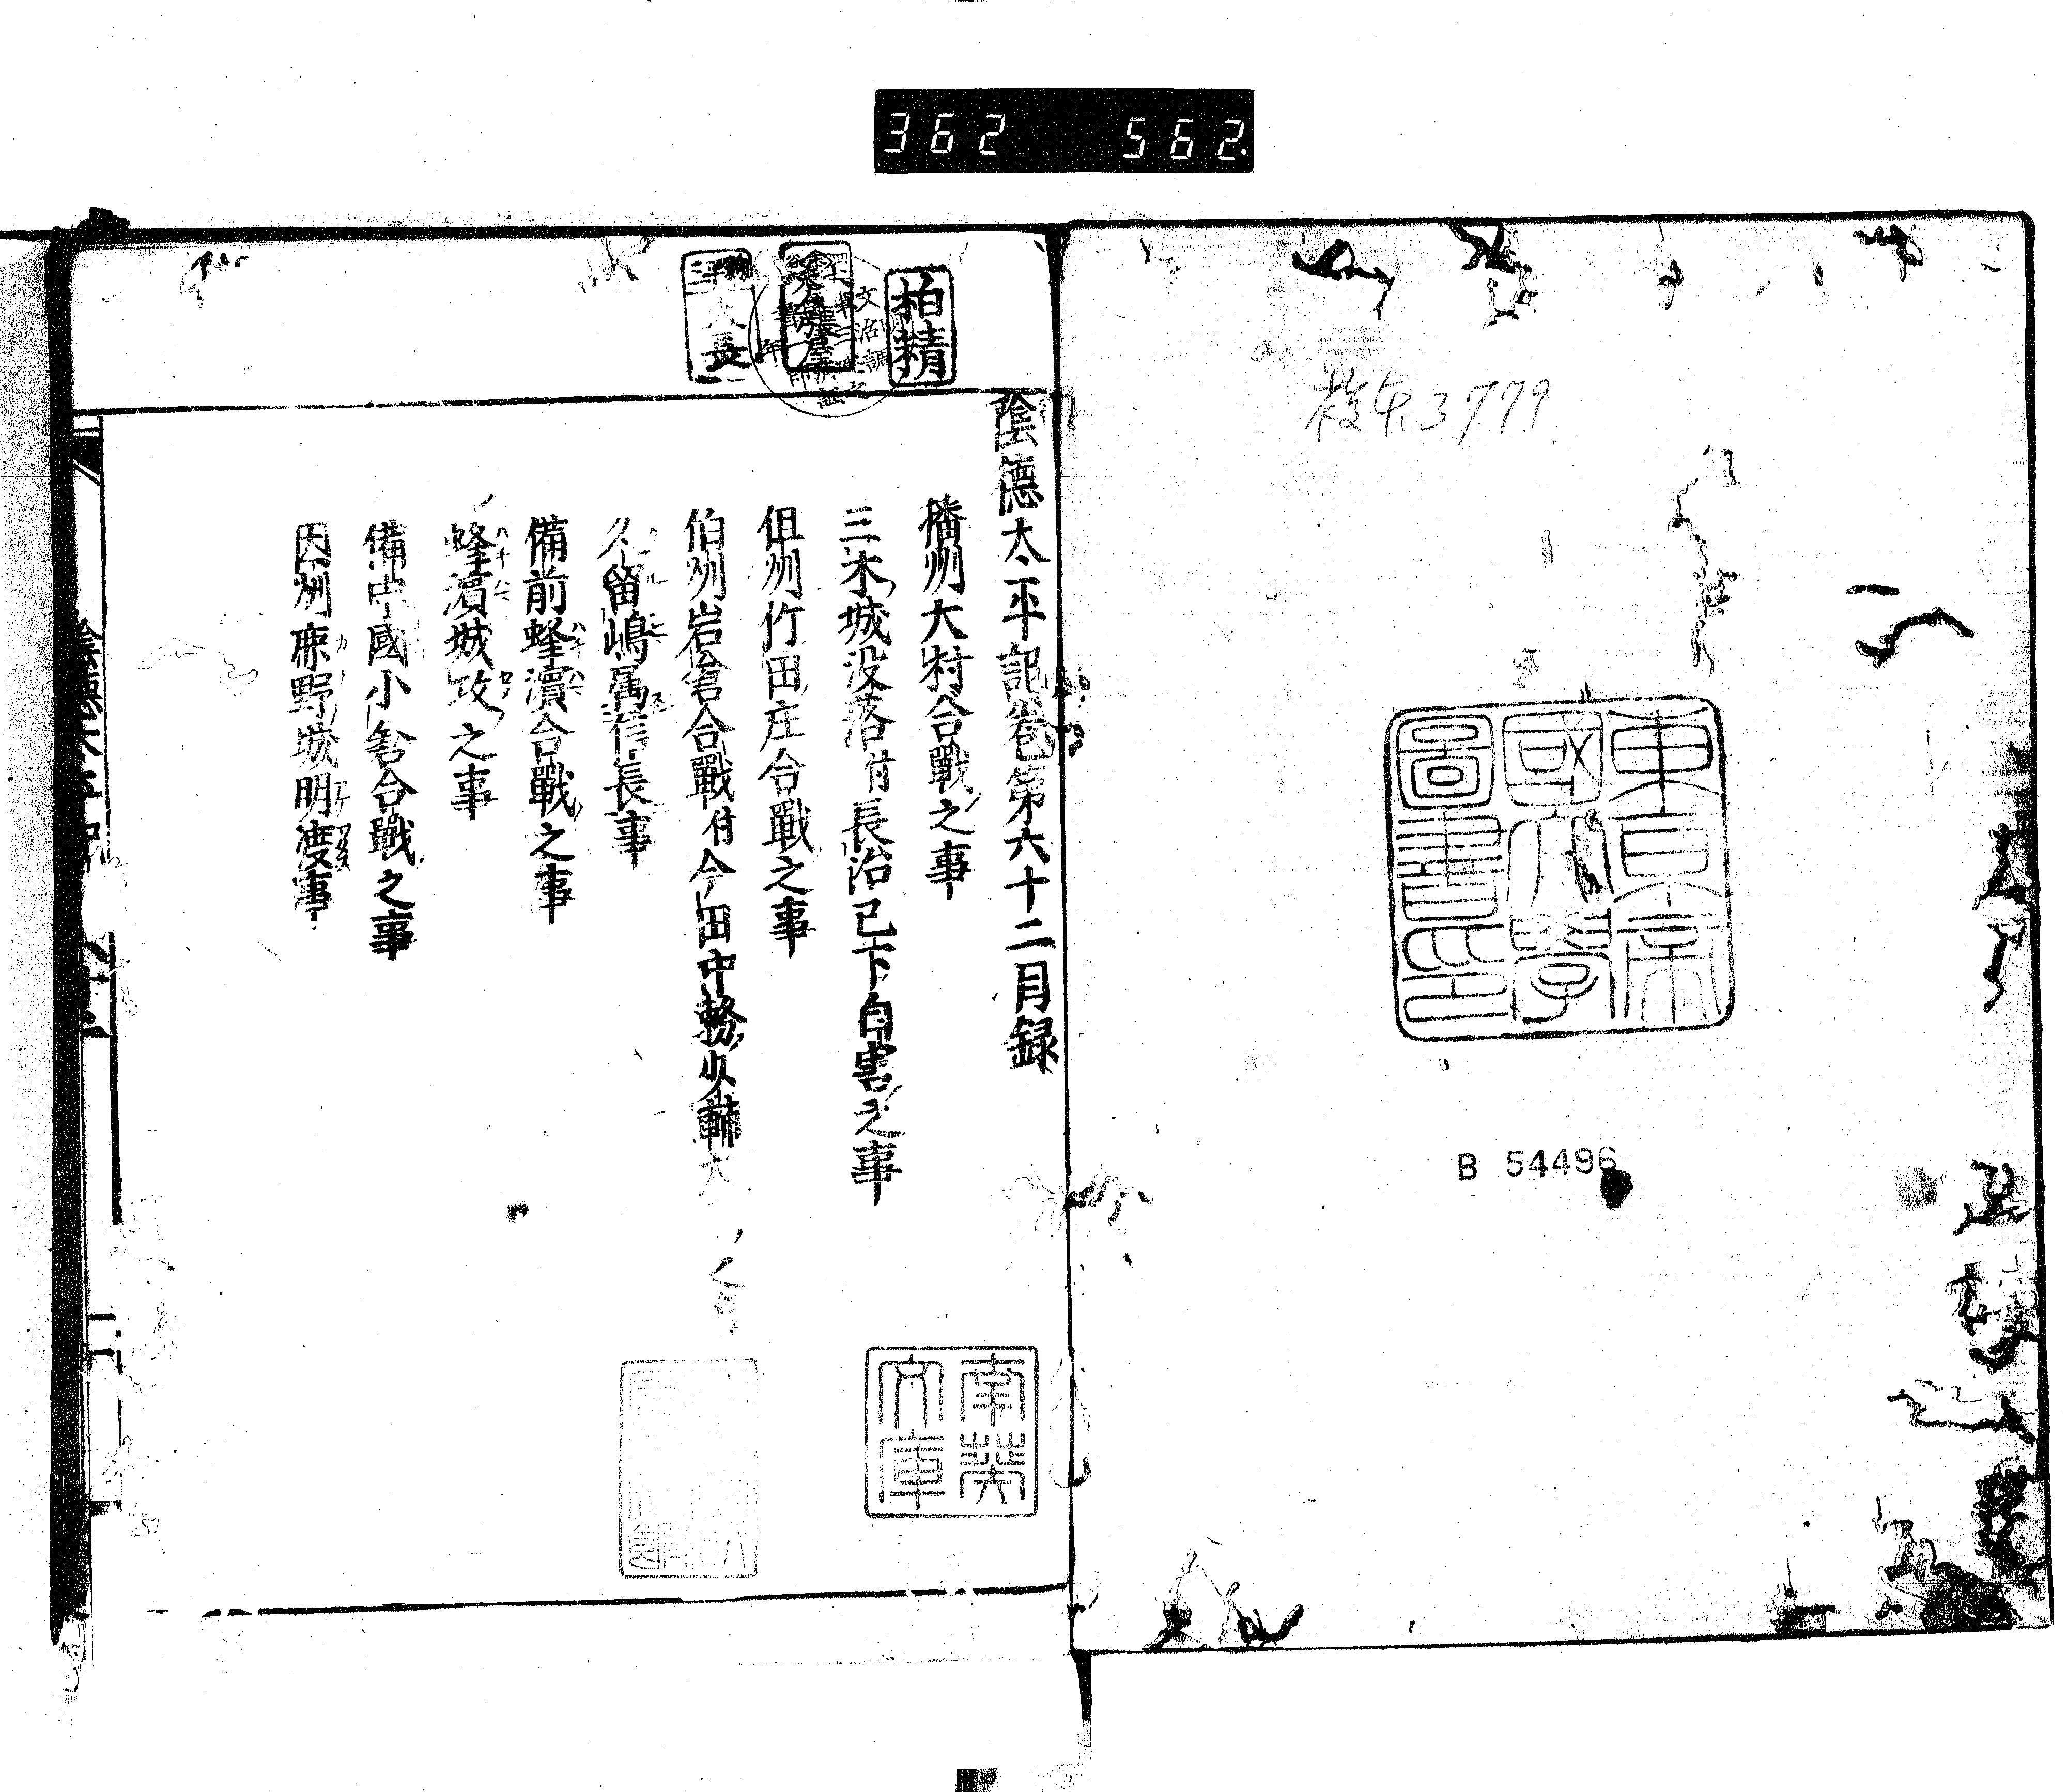 362 562
校本3779
東京帝
國大學
圖書印
B 54496
柏精
陰德太平記卷第六十二目録
播州大村合戰之事
三木城没落付長治已下自害之事
但州竹田庄合戰之事
伯州岩倉合戰付今田中務少輔
久留嶋属信長事
備前蜂濱合戰之事
蜂濱城攻之事
備中國小倉合戰之事
因州鹿野城明渡事
南葵
文庫